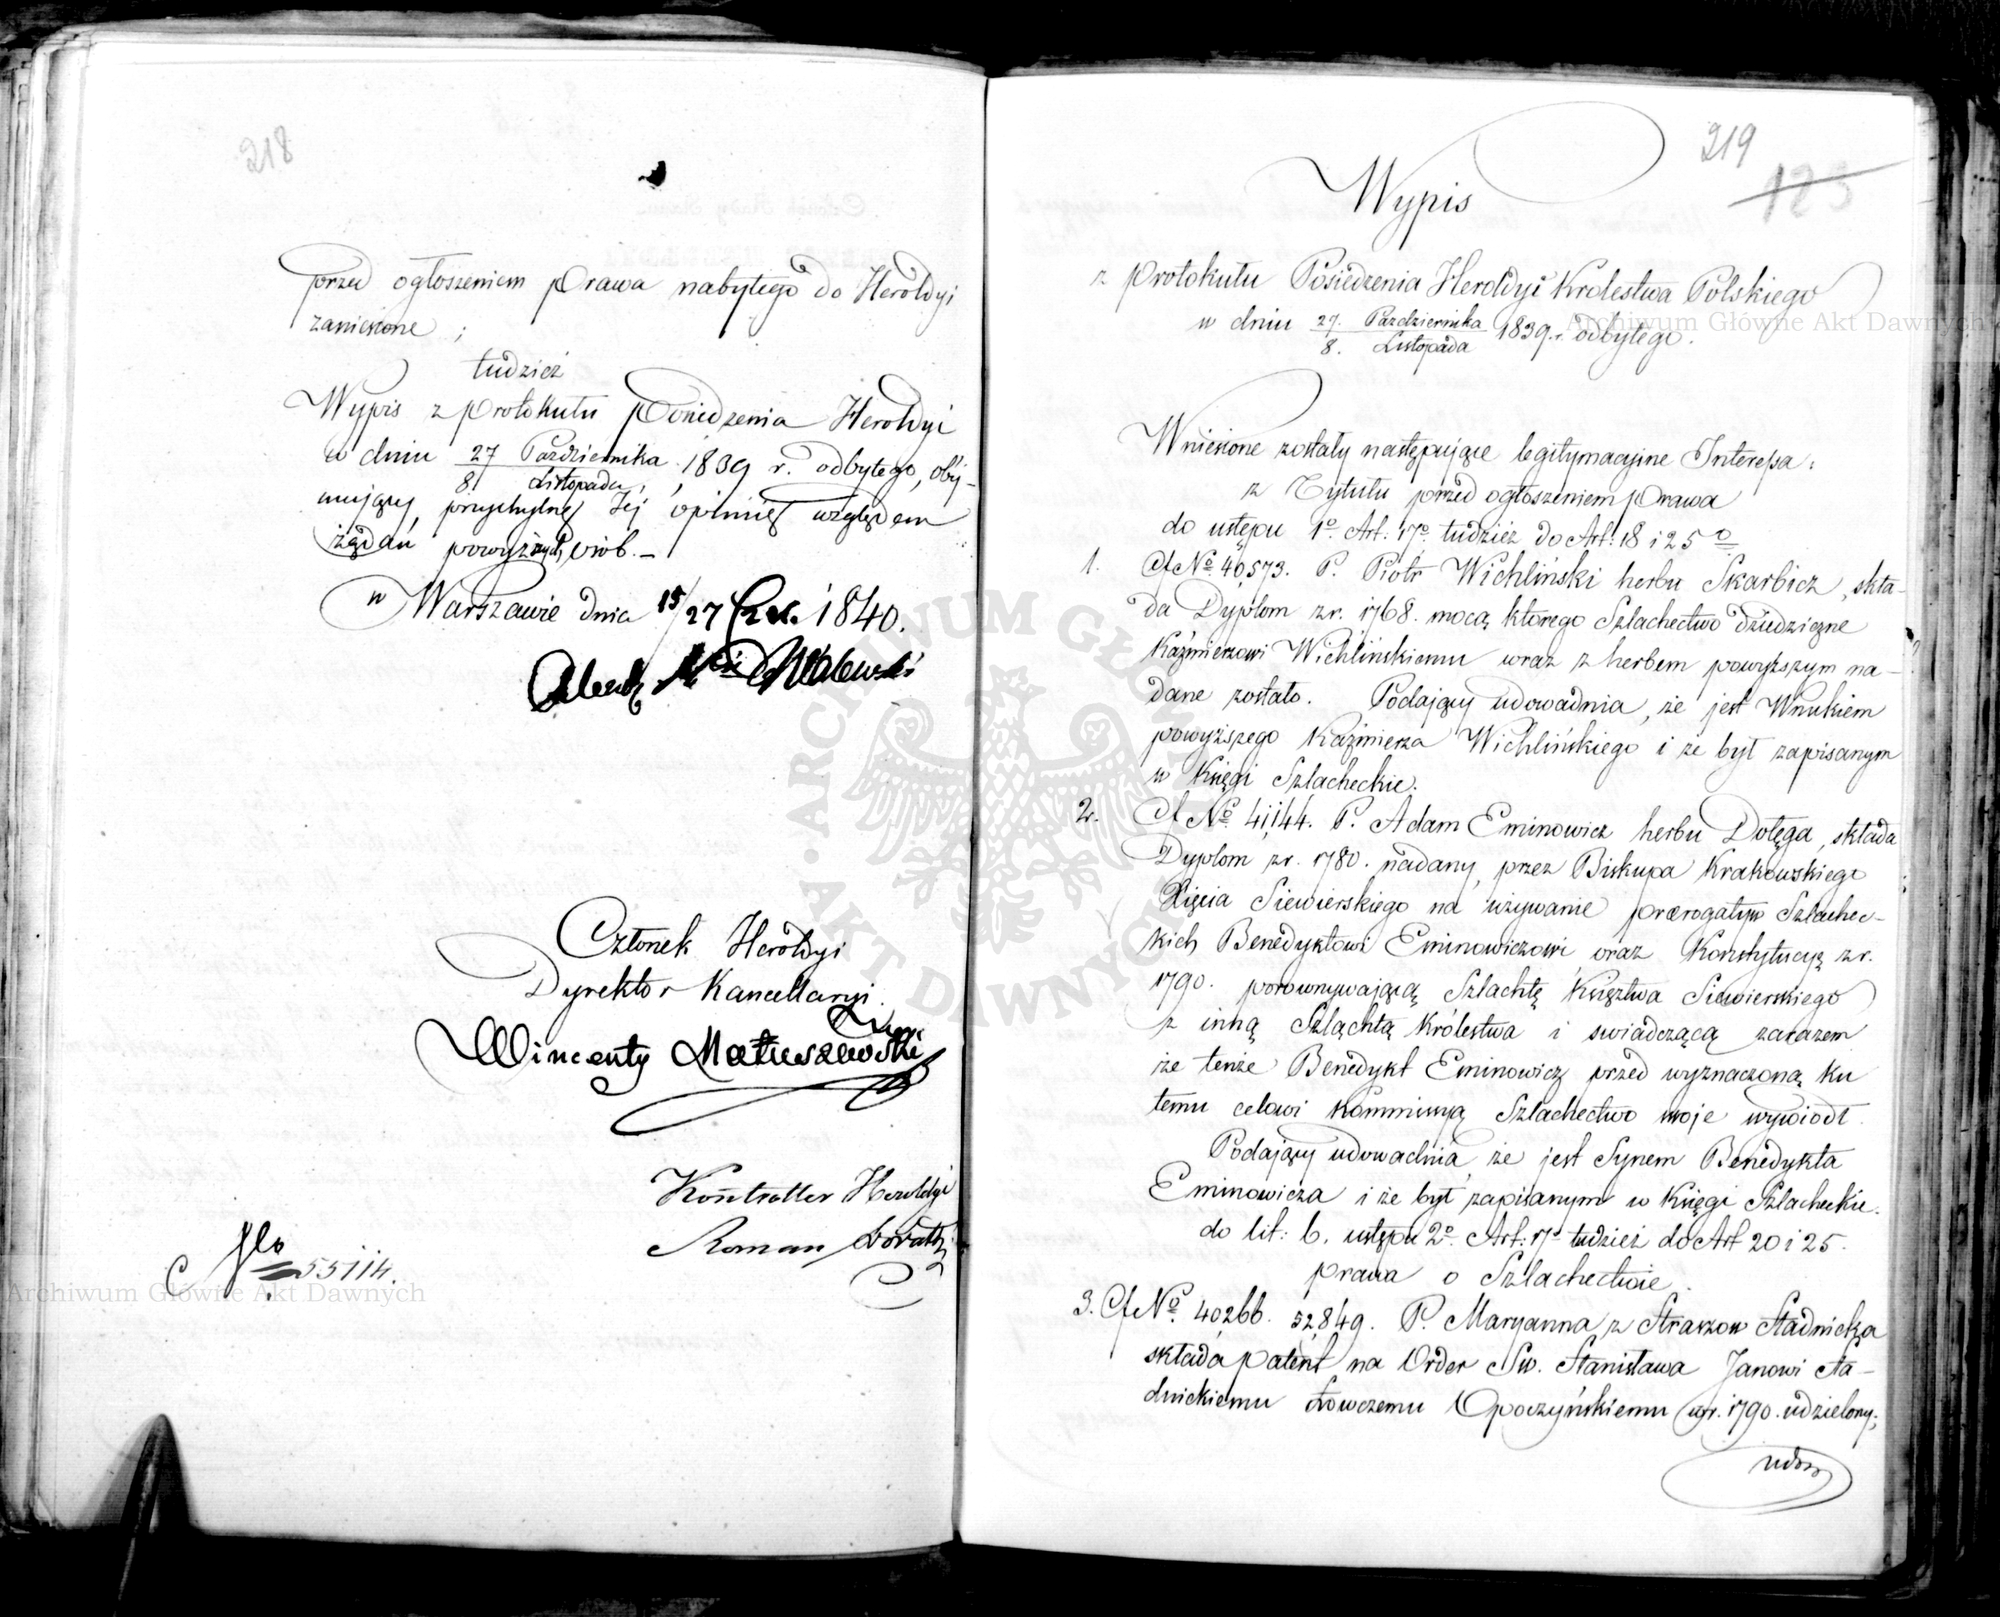 218
przed ogłoszeniem Prawa nabytego do Heroldyi
zaniesione ;
tudzież
Wypis z protokułu Posiedzenia Heroldyi
w dniu 27 Października / 8 Listopada, 1839 r. odbytego, obej-
mujący przychylną Jej opinię względem
żądań powyższych osób. —
w Warszawie dnia 15/27 1840.
Członek Heroldyi
Dyrektor Kancellaryi.
Wincenty Matuszewski
Kontroller Heroldyi
Roman
No 55114.
219
125
Wypis
z Protokułu Posiedzenia Heroldyi Królestwa Polskiego
w dniu 27. Października / 8. Listopada 1839. r. odbytego.
Wniesione zostały następujące legitymacyjne Interessa:
z Tytułu przed ogłoszeniem Prawa
do ustępu 1o Art: 17o tudzież do Art: 18 i 25o
1. Ad No 40,573. P. Piotr Wichliński herbu Skarbicz, skła-
da Dyplom z r. 1768. mocą którego Szlachectwo dziedziczne
Kaźmierzowi Wichlińskiemu wraz z herbem powyższym na-
dane zostało. Podający udowadnia, że jest Wnukiem
powyższego Kaźmierza Wichlińskiego i że był zapisanym
w Księgi Szlacheckie.
2. Ad No 41,144. P. Adam Eminowicz herbu Dołęga, składa
Dyplom z r. 1780. nadany przez Biskupa Krakowskiego
Xięcia Siewierskiego na używanie prerogatyw Szlachec-
kich Benedyktowi Eminowiczowi oraz Konstytucyą z r.
1790. porównywającą Szlachtę Księztwa Siewierskiego
z inną Szlachtą Królestwa i swiadczącą zarazem
że tenże Benedykt Eminowicz przed wyznaczoną ku
temu celowi Kommissyą Szlachectwo swoje wywiódł.
Podający udowadnia że jest Synem Benedykta
Eminowicza i że był zapisanym w Księgi Szlacheckie.
do lit: b. ustępu 2o Art: 17 tudzież do Art 20 i 25.
prawa o Szlachectwie.
3. Ad No 40266. 52,849. P. Maryanna z Straszow Stadnicka
składa patent na Order Sw. Stanisława Janowi Sta-
dnickiemu Łowczemu Opoczyńskiemu w r. 1790. udzielony;
udow
Archiwum Główne Akt Dawnych
Archiwum Główne Akt Dawnych
ARCHIWUM GŁÓWNE AKT DAWNYCH